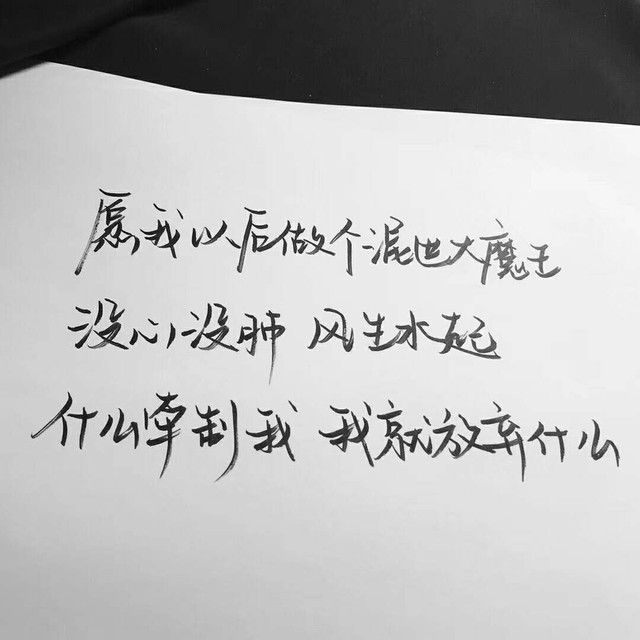 愿我以后做个混世大魔王
没心没肺 风生水起
什么牵制我 我就放弃什么